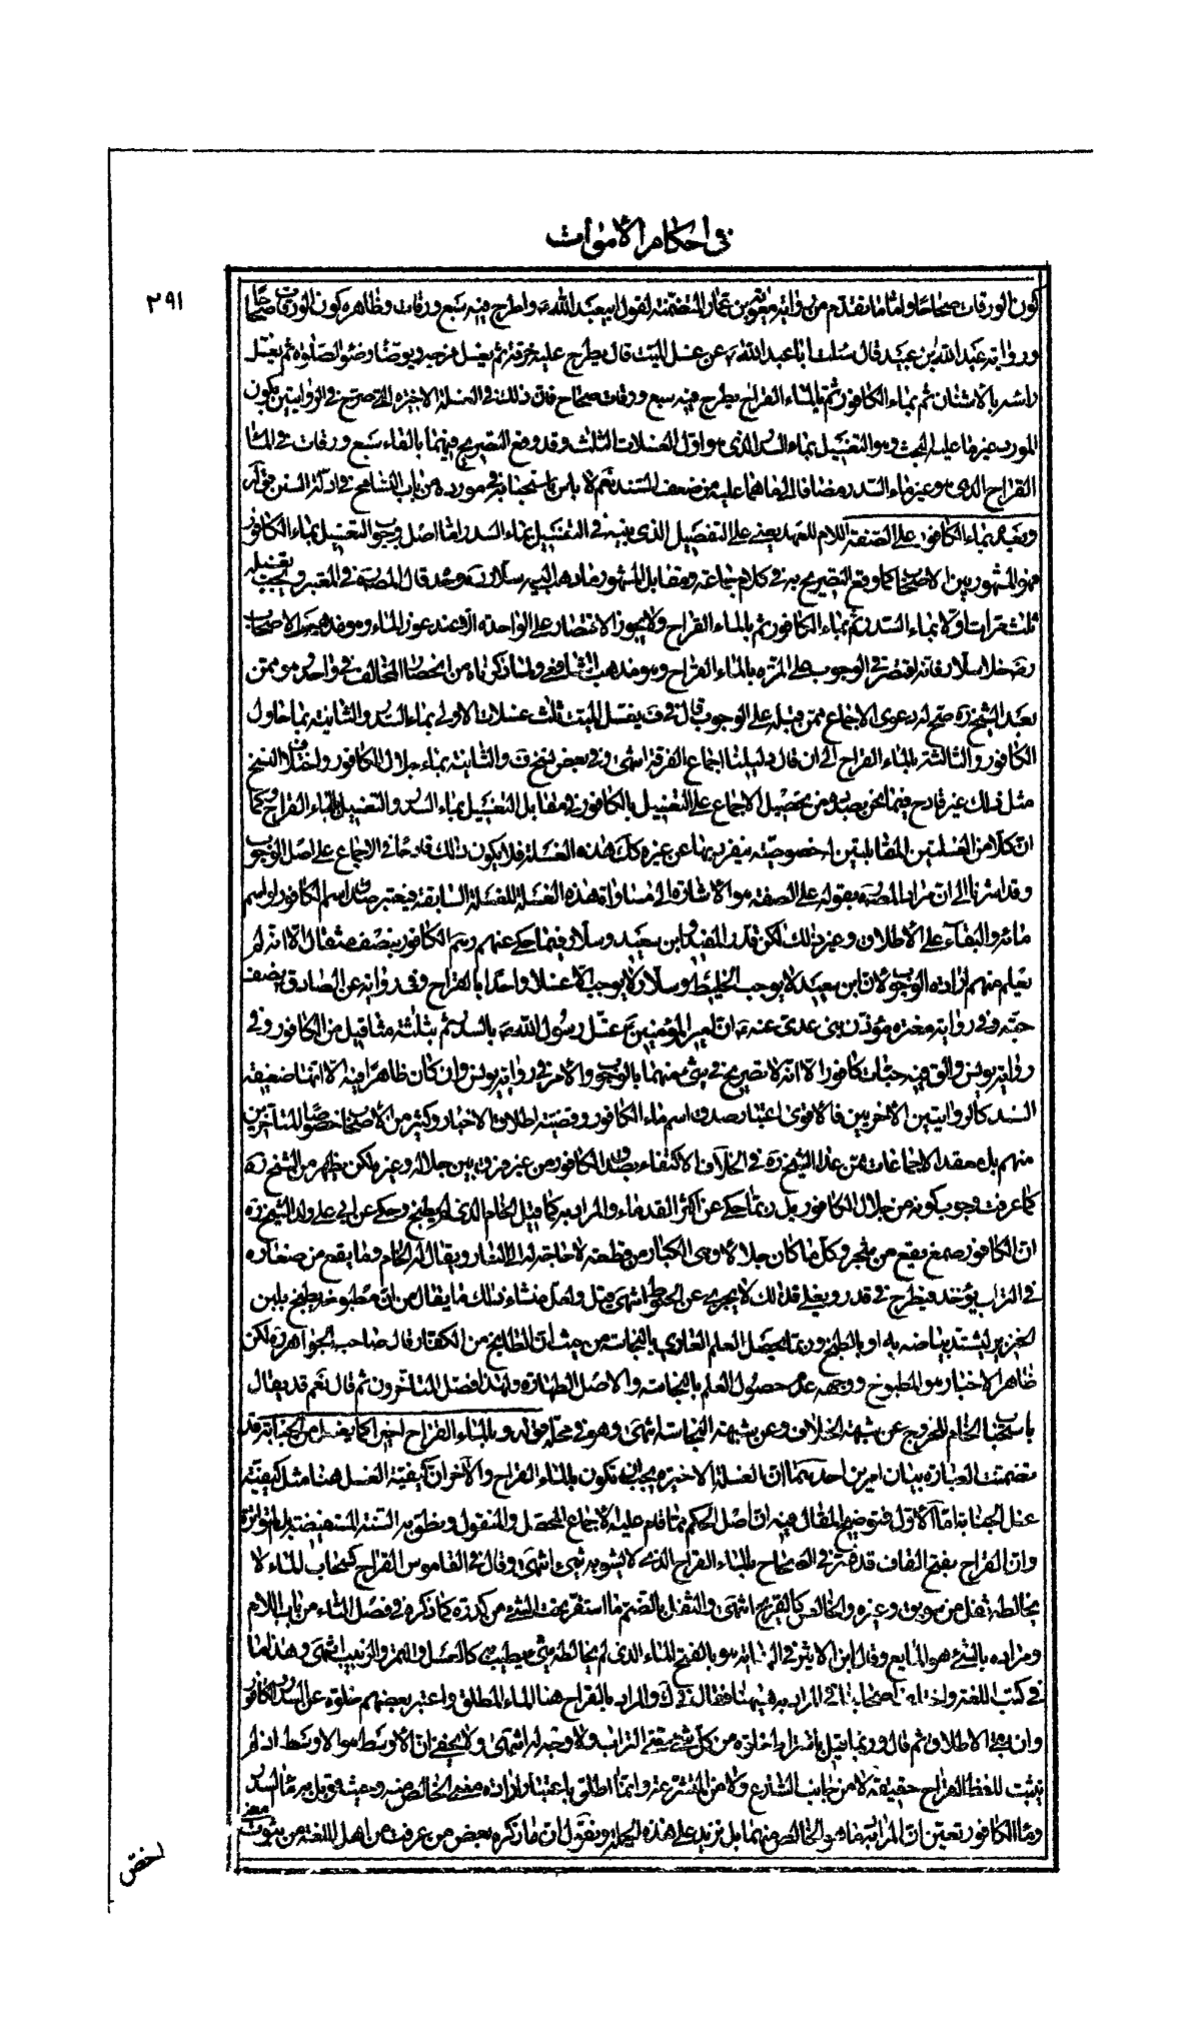 في احكام الأموات
٢٩١
كون الورقات صحاحا وامّا ما تقدّم من رواية معوية بن عمار المتضمّنة لقول ابيعبد الله ع واطرح فيه سبع ورقات وظاهره كون الورق صحاحا
ورواية عبد الله بن عبيد قال سئلت اباعبد الله ع عن غسل الميّت قال يطرح عليه خرقة ثم يغسل فرجه ويوضّأ وضوء الصّلوة ثم يغسل
راسه بالاشنان ثم بماء الكافور ثمّ بالماء القراح يطرح فيه سبع ورقات صحاح فانّ ذلك في الغسلة الاخيرة الّتى صرّح في الروايتين بكون
المورد غير ما عليه البحث وهو التغسيل بماء السدر الّذى هو اوّل الغسلات الثلث وقد وقع التصريح فيهما بالقاء سبع ورقات في الماء
القراح الّذى هو غير ماء السّدر مضافا الى ما هما عليه من ضعف السّند نعم لا باس باستحبابه في مورده من باب التسامح في ادلّة السنن قوله
وبعده بماء الكافور على الصّفة اللام للعهد يعنى على التفصيل الّذى بيّنه في التغسيل بماء السدر امّا اصل وجوب التغسيل بماء الكافور
فهو المشهور بين الاصحاب كما وقع التصريح به في كلام جماعة ومقابل المشهور ما ذهب اليه سلّار ره وقد قال المص ره في المعتبر ويجب تغسيله
ثلث مرات اولا بماء السّدر ثم بماء الكافور ثم بالماء القراح ولا يجوز الاقتصار على الواحدة الّا عند عوز الماء وهو مذهب الاصحاب
خلا سلّار فانّه اقتصر في الوجوب على المرّة بالماء القراح وهو مذهب الشافعى ولما ذكرناه من انحصار المخالف في واحد هو ممّن
بعد الشيخ ره صحّ له دعوى الاجماع ممّن قبله على الوجوب قال في ف يغسل الميّت ثلث غسلات الاولى بماء السدر والثانية بماء جلال
الكافور والثالثة بالماء القراح الى ان قال دليلنا اجماع الفرقة انتهى وفي بعض نسخ ف والثانية بماء جلال الكافور واختلاف النسخ
مثل ذلك غير قادح فيما نحن بصدده من تحصيل الاجماع على التغسيل بالكافور في مقابل التغسيل بماء السدر والتغسيل بالماء القراح وكما
انّ كلا من الغسلتين المقابلتين له خصوصيّة ينفرد بها عن غيره كك هذه الغسلة فلا يكون ذلك قادحا في الاجماع على اصل الوجوب
وقد اشرنا الى ان مراد المص ره بقوله على الصفة هو الاشارة الى مساواة هذه الغسلة للغسلة السابقة فيعتبر صدق اسم الكافور او اسم
مائه والبقاء على الاطلاق وغير ذلك لكن قدّر المفيد وابن سعيد وسلّار فيما حكى عنهم رسم الكافور بنصف مثقال الّا انّه لم
يعلم منهم ارادة الوجوب لانّ ابن سعيد لا يوجب الخليط وسلّار لا يوجب الّا غسلا واحدا بالقراح وفي رواية عن الصادق ع بنصف
حبّة وفي رواية مغيرة مؤذّن بنى عدى عنه ع انّ امير المؤمنين ع غسّل رسول الله ص بالسدر ثم بثلثة مثاقيل من الكافور وفي
رواية يونس والق فيه حبّات كافور الّا انّه لا تصريح في شئ منهما بالوجوب والامر في رواية يونس وان كان ظاهرا فيه الّا انّها ضعيفة
السند كالروايتين الاخريين فالاقوى اعتبار صدق اسم ماء الكافور وقضيّة اطلاق الاخبار وكثير من الاصحاب خصوصا المتأخّرين
منهم بل معقد الاجماعات ممّن عدا الشيخ ره في الخلاف الاكتفاء بصدق الكافور من غير فرق بين جلاله وغيره لكن ظهر من الشيخ ره
كما عرفت وجوب كونه من جلال الكافور بل ربّما حكى عن اكثر القدماء والمراد به كما قيل الخام الّذى لم يطبخ وحكى عن ابى على ولد الشيخ ره
انّ الكافور صمغ يقع من شجر وكلّ ما كان جلالا وهى الكبار من قطعه لا حاجة له الى النار ويقال له الخام وما يقع من صغاره
في التراب يؤخذ فيطرح في قدر ويغلى فذلك لا يجزى عن الحنوط انتهى قيل ولعلّ منشاء ذلك ما يقال من انّ مطبوخه يطبخ بلبن
الخنزير ليشتدّ بياضه به او بالطبخ وربّما يحصل العلم العادى بالنجاسة من حيث انّ الطابخ من الكفّار قال صاحب الجواهر ره لكن
ظاهر الاخبار هو المطبوخ ووجهه عدم حصول العلم بالنجاسة والاصل الطهارة ولهذا افضل المتاخّرون ثم قال نعم قد يقال
باستحباب الخام للخروج عن شبهة الخلاف وعن شبهة النجاسة انتهى وهو في محلّه قوله وبالماء القراح اخيرا كما يغسل من الجنابة قد
تضمّنت العبارة بيان امرين احدهما انّ الغسلة الاخيرة يجب ان تكون بالماء القراح والآخر انّ كيفيّة الغسل هنا مثل كيفيّة
غسل الجنابة امّا الاوّل فتوضيح المقال فيه انّ اصل الحكم ممّا قام عليه الاجماع المحصّل والمنقول ونطق به السنة المستفيضة بل المتواترة
وانّ القراح بفتح القاف قد فسّر في الصّحاح بالماء القراح الّذى لا يشوبه شئ انتهى وقال في القاموس القراح كسحاب الماء لا
يخالطه ثفل من سويق وغيره والخالص كالقريح انتهى والثفل بالضم ما استقرّ تحت الشئ من كدرة كما ذكره في فصل الثاء من باب اللام
ومراده بالشئ هو المايع وقال ابن الاثير في النهاية هو بالفتح الماء الّذى لم يخالطه شئ يطيّب به كالعسل والتمر والزبيب انتهى وهذا ما
في كتب اللغة واختلف اصحابنا في المراد به فيهنا فقال في ك والمراد بالقراح هنا الماء المطلق واعتبر بعضهم خلوّه عن السدر والكافور
وان بقى الاطلاق ثم قال وربّما قيل باشتراط خلوّه من كلّ شئ حتّى التراب ولا وجه له انتهى ولا يخفى انّ الأوسط هو الاوسط اذ لم
يثبت للفظ القراح حقيقة لا من جانب الشارع ولا من المتشرّعة وانّما اطلق باعتبار ارادة معنى الخالص منه وحيث قوبل به ماء السدر
وماء الكافور تعيّن انّ المراد به ما هو الخالص منهما بل نزيد على هذه الجملة ونقول انّ ما ذكره بعض من عرفت من اهل اللغة من ثبوت معنى
اخصّ